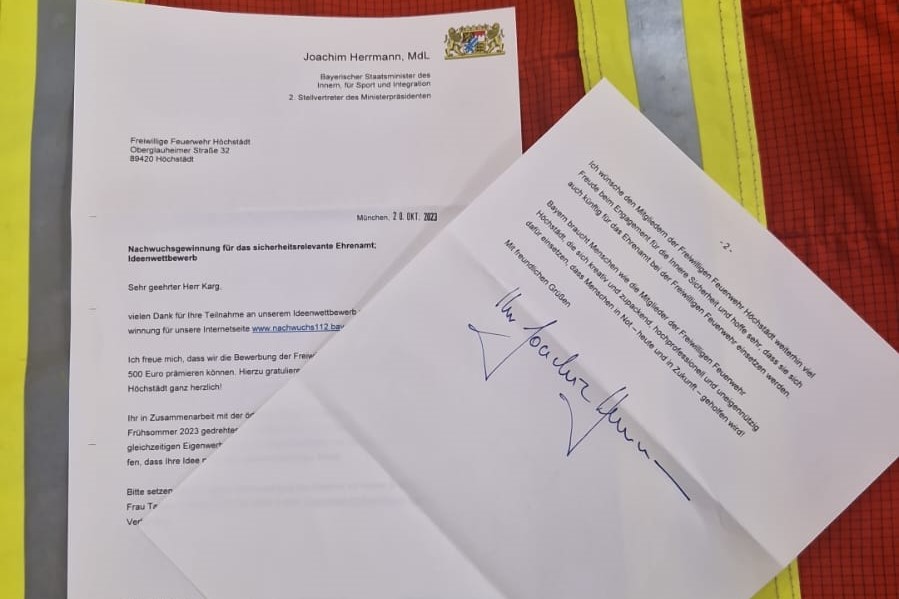 Joachim Herrmann, MdL
Bayerischer Staatsminister des
Innern, für Sport und Integration
2. Stellvertreter des Ministerpräsidenten
Freiwillige Feuerwehr Höchstädt
Oberglauheimer Straße 32
89420 Höchstädt
München, 20. OKT. 2023
Nachwuchsgewinnung für das sicherheitsrelevante Ehrenamt;
Ideenwettbewerb
Sehr geehrter Herr Karg,
vielen Dank für Ihre Teilnahme an unserem Ideenwettbewerb
winnung für unsere Internetseite www.nachwuchs112.bay
Ich freue mich, dass wir die Bewerbung der
500 Euro prämieren können. Hierzu gratuliere
Höchstädt ganz herzlich!
Ihr in Zusammenarbeit mit der
Frühsommer 2023 gedrehter
gleichzeitigen Eigenwert
fen, dass Ihre Idee
Bitte setzen
Frau
- 2 -
Ich wünsche den Mitgliedern der Freiwilligen Feuerwehr Höchstädt weiterhin viel
Freude beim Engagement für die Innere Sicherheit und hoffe sehr, dass sie sich
auch künftig für das Ehrenamt bei der Freiwilligen Feuerwehr einsetzen werden.
Bayern braucht Menschen wie die Mitglieder der Freiwilligen Feuerwehr
Höchstädt, die sich kreativ und zupackend, hochprofessionell und uneigennützig
dafür einsetzen, dass Menschen in Not – heute und in Zukunft – geholfen wird!
Mit freundlichen Grüßen
Ihr Joachim Herrmann